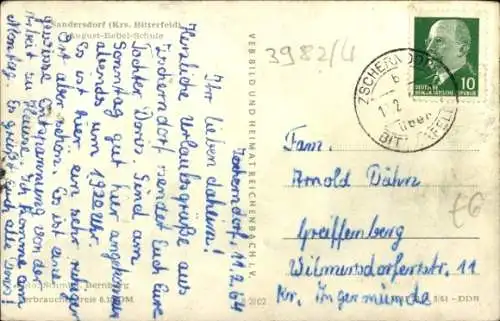 Sandersdorf (Krs. Bitterfeld)
August-Bebel-Schule
Zscherndorf, 11.2.64
Ihr lieben daheim!
Herzliche Urlaubsgrüße aus
Zscherndorf sendet Euch Eure
Tochter Doris. Sind am
Sonntag gut hier angekommen
abends um 1930 Uhr.
Es ist hier ein sehr ruhiger
Ort aber schön. Es ist eine
gewisse Entspannung von der
Arbeit zu Hause. Ich komme am
Montag. Es grüßt Euch alle Doris!
Foto: Schmidt, Bernburg
Verbraucherpreis 0,20 DM
VEB BILD UND HEIMAT REICHENBACH I. V.
3982/4
DEUTSCHE DEMOKRATISCHE REPUBLIK
10
ZSCHERNDORF
über
BITTERFELD
Fam.
Arnold Dähn
Greiffenberg
Wilmersdorferstr. 11
Kr. Angermünde
DDR